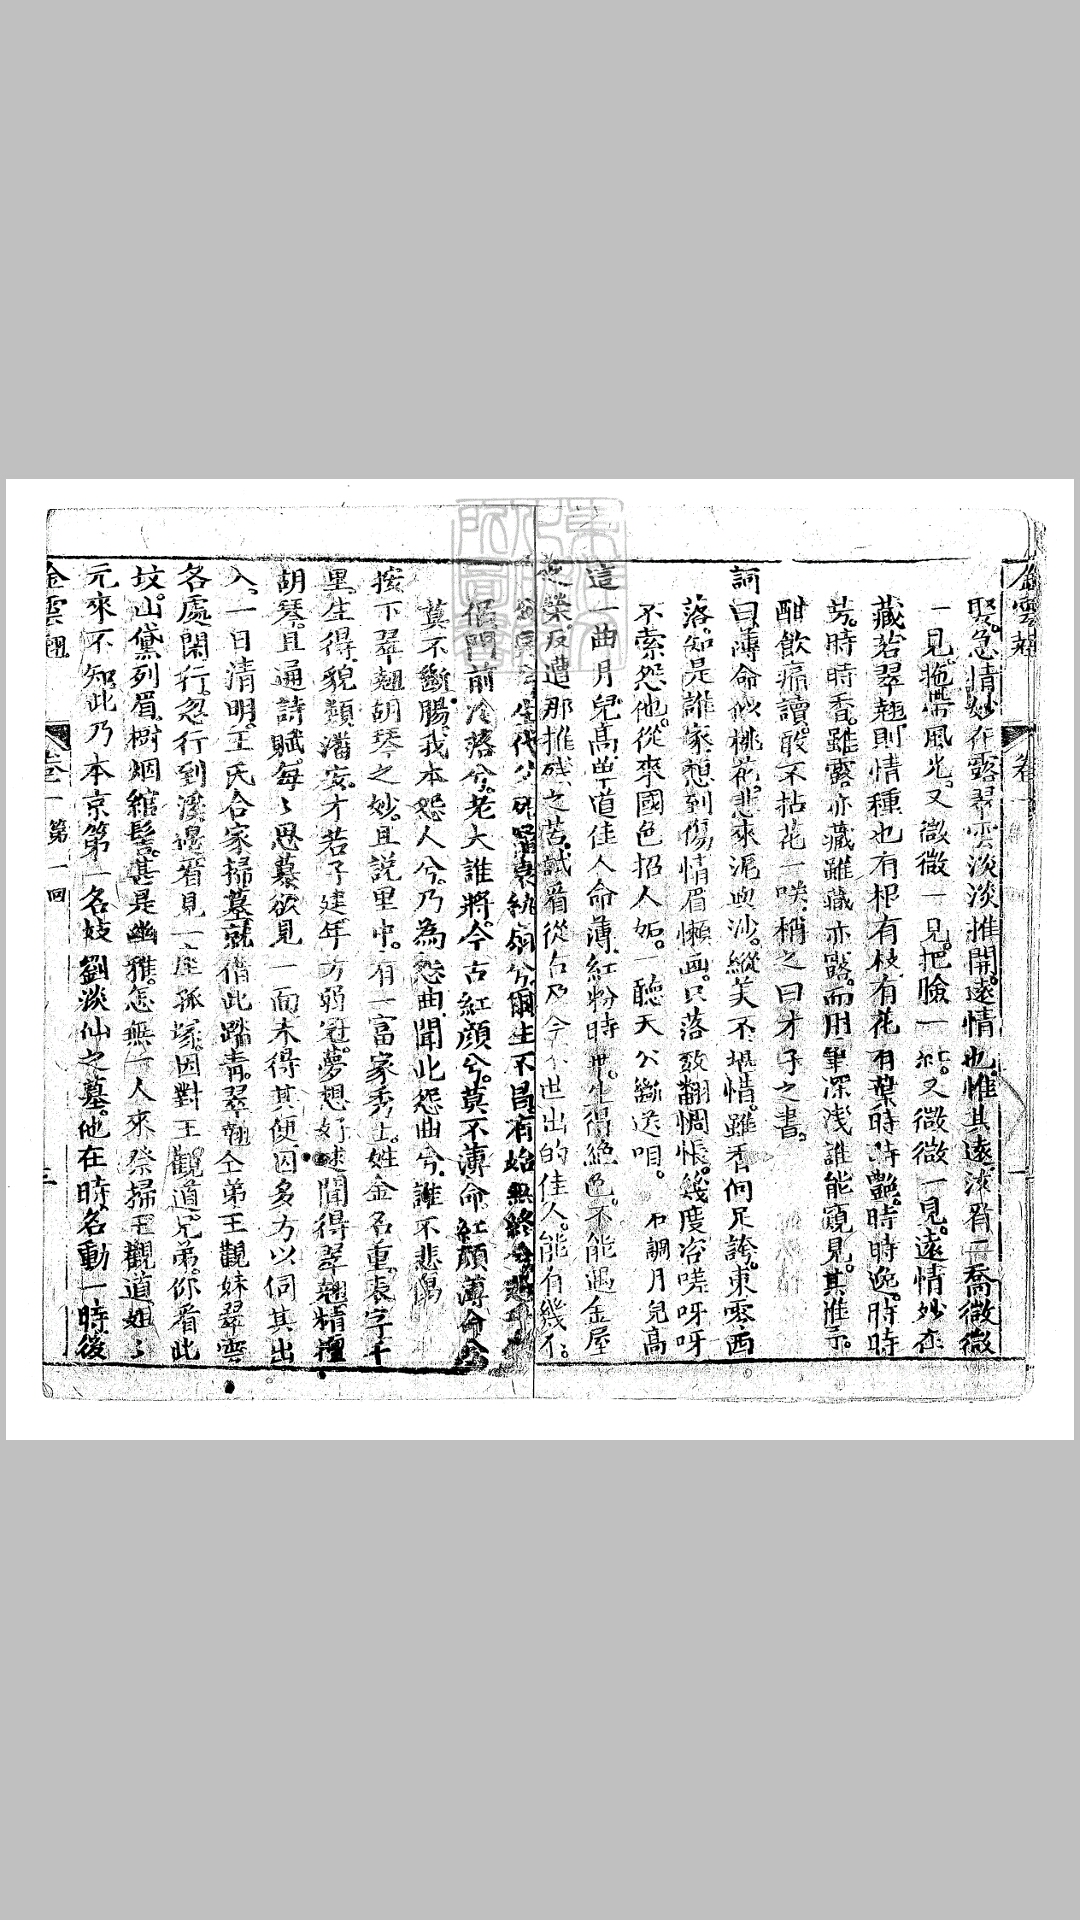 金雲翹 卷一
聚急情妙在露翠雲淡淡推開遠情也惟其遠淡看二喬微微
一見拖帶風光又微微一見把臉一紅又微微一見遠情妙在
藏若翠翹則情種也有根有枝有花有葉時時艷時時逸時時
芳時時香雖露亦藏雖藏亦露而用筆深淺誰能窺見其淮
酣飲痛讀敢不拈花一咲梢之曰才子之書
詞曰薄命似桃花悲來泥與沙縱美不堪惜雖香何足誇東零西
落知是誰家想到傷情眉懶画只落致翻惆悵幾度冷嗟呀呀
不索怨他從來國色招人妬一聽天公斷送咱 右調月兒高
這一曲月兒高單道佳人命薄紅粉時 生得絕色不能遇金屋
之榮反遭那摧殘之苦試看從古及今不世出的佳人能有幾个
紈扇兮爾生不昌有始無終兮
門前冷落兮老大誰將今古紅顏兮莫不薄命紅顏薄命兮
莫不斷腸我本怨人兮乃為怨曲聞此怨曲兮誰不悲傷
按下翠翹胡琴之妙且説里中有一富家秀士姓金名重表字千
里生得貌類潘安才若子建年方弱冠夢想好逑聞得翠翹精擅
胡琴且通詩賦每〻思慕欲見一面未得其便因多方以伺其出
入一日清明王氏合家掃墓就借此踏青翠翹仝弟王觀妹翠雲
各處閑行忽行到溪邊看見一座孤塚因對王觀道兄弟你看此
坟山黛列眉樹烟綰髻甚是幽雅怎無一人來祭掃王觀道姐〻
元來不知此乃本京第一名妓劉淡仙之墓他在時名動一時後
金雲翹 卷一 第一回 三